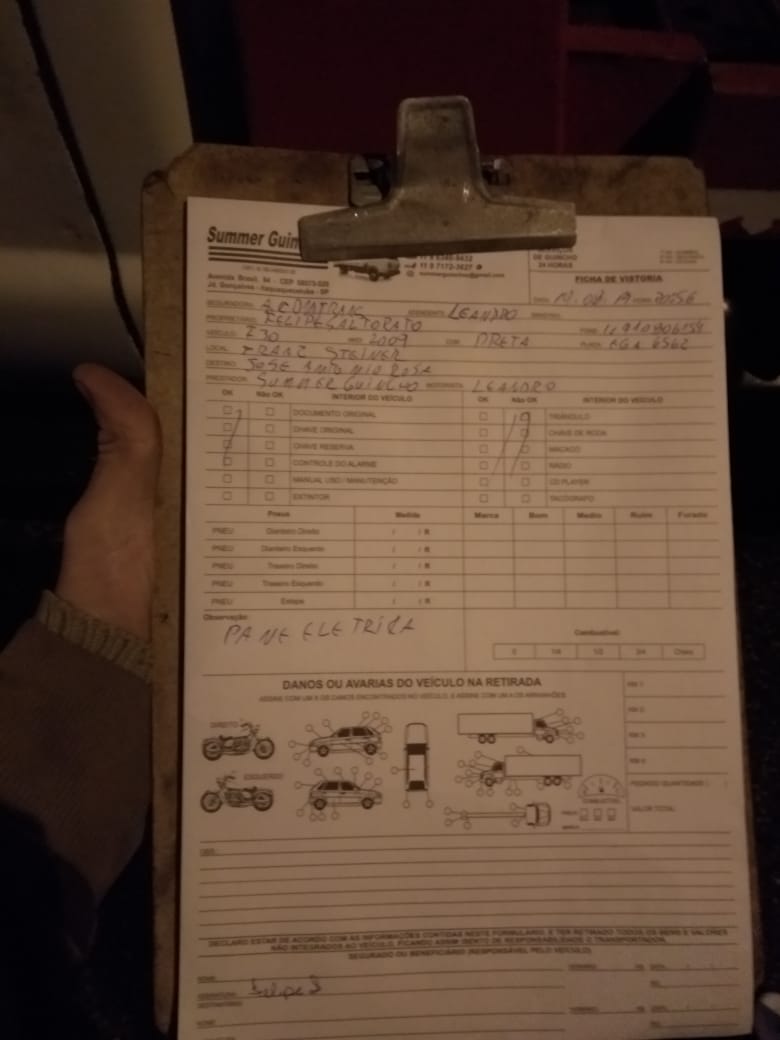 Summer Guin
DE GUINCHO
24 HORAS
11 9 7172-3627
Avenida Brasil, 94 - CEP
Jd. Gonçalves - Itaquaquecetuba - SP
FICHA DE VISTORIA
SEGURADORA: LEANDRO
DATA: HORA:
PROPRIETÁRIO: FELIPE SALTORATO
VEÍCULO: I30 ANO: 2009 COR: PRETA PLACA: EGA 6562
LOCAL: FRANZ STEINER
DESTINO: JOSE ANTONIO ROSA
PRESTADOR: SUMMER GUINCHO MOTORISTA: LEANDRO
OK Não OK INTERIOR DO VEÍCULO OK Não OK INTERIOR DO VEÍCULO
DOCUMENTO ORIGINAL TRIÂNGULO
CHAVE ORIGINAL CHAVE DE RODA
CHAVE RESERVA MACACO
CONTROLE DO ALARME RÁDIO
MANUAL USO / MANUTENÇÃO CD PLAYER
EXTINTOR TACÓGRAFO
Pneus Medida Marca Bom Medio Ruim Furado
PNEU Dianteiro Direito / / R
PNEU Dianteiro Esquerdo / / R
PNEU Traseiro Direito / / R
PNEU Traseiro Esquerdo / / R
PNEU Estepe / / R
Observação:
PANE ELETRICA
Combustível
0 1/4 1/2 3/4 Cheio
DANOS OU AVARIAS DO VEÍCULO NA RETIRADA
ASSINE COM UM X OS DANOS ENCONTRADOS NO VEÍCULO, E ASSINE COM UM A OS ARRANHÕES
KM 1
KM 2
KM 3
KM 4
DIREITO
ESQUERDO
PEDÁGIO QUANTIDADE ( )
VALOR TOTAL:
COMBUSTÍVEL
OBS.:
DECLARO ESTAR DE ACORDO COM AS INFORMAÇÕES CONTIDAS NESTE FORMULÁRIO, E TER RETIRADO TODOS OS BENS E VALORES
NÃO INTEGRADOS AO VEÍCULO, FICANDO ASSIM ISENTO DE RESPONSABILIDADE O TRANSPORTADOR.
SEGURADO OU BENEFICIÁRIO (RESPONSÁVEL PELO VEÍCULO)
NOME:
ASSINATURA: Felipe S
DESTINATÁRIO:
NOME: